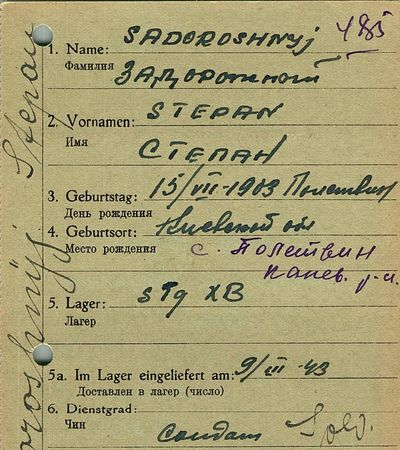 SADOROSHNYj 485
1. Name:
Фамилия ЗАДОРОЖНЫЙ
STEPAN
2. Vornamen:
Имя СТЕПАН
3. Geburtstag: 15/VII-1903 Полствин
День рождения
4. Geburtsort: Киевской обл
Место рождения с. Полствин
Канев. р-н.
5. Lager: STg XB
Лагер
5a. Im Lager eingeliefert am: 9/III-43
Доставлен в лагер (число)
6. Dienstgrad:
Чин Солдат Sold.
Stepan